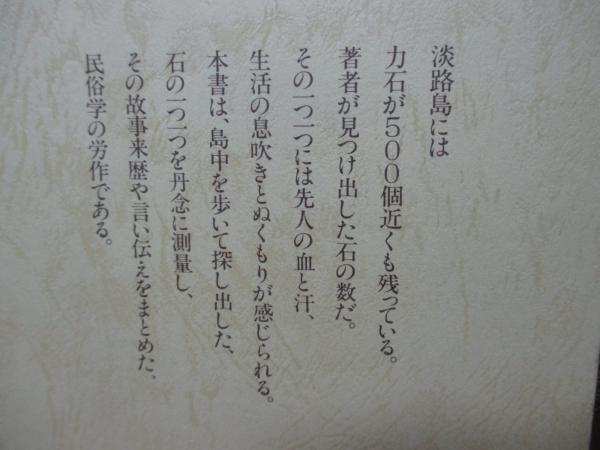 淡路島には
力石が500個近くも残っている。
著者が見つけ出した石の数だ。
その一つ一つには先人の血と汗、
生活の息吹きとぬくもりが感じられる。
本書は、島中を歩いて探し出した、
石の一つ一つを丹念に測量し、
その故事来歴や言い伝えをまとめた、
民俗学の労作である。